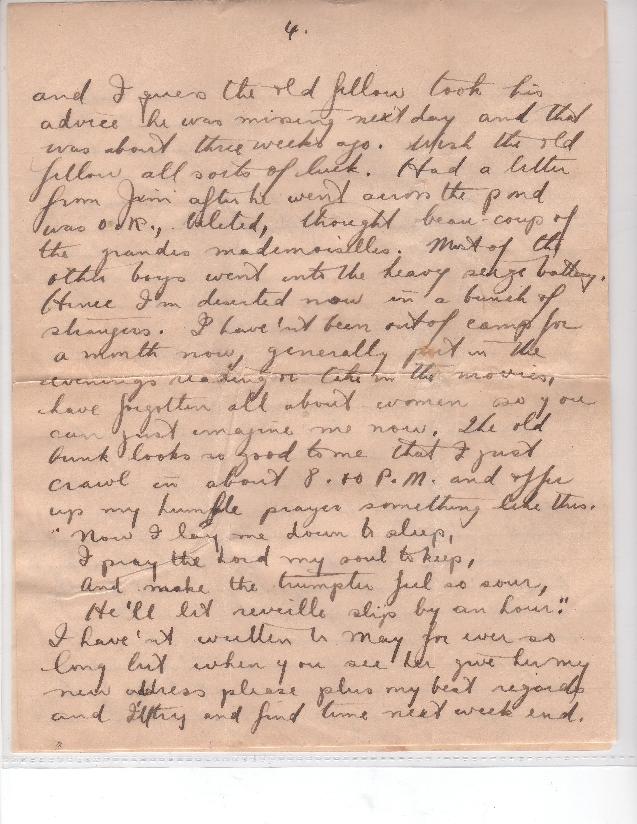 4.
and I guess the old fellow took his
advice he was missing next day and that
was about three weeks ago. Wish the old
fellow all sorts of luck. Had a letter
from Jim after he went across the pond
was O.K., thought beau-coup of
the grandes mademoiselles. Most of the
other boys went into the heavy seige battery.
Hence I'm deserted now in a bunch of
strangers. I have'nt been out of camp for
a month now, generally put in the
evenings reading or take in the movies,
have forgotten all about women so you
can just imagine me now. The old
bunk looks so good to me that I just
crawl in about 8.40 P.M. and offer
up my humble prayer something like this.
"Now I lay me down to sleep,
I pray the Lord my soul to keep,
And make the trumpter feel so sour,
He'll let reveille slip by an hour."
I have'nt written to May for ever so
long but when you see her give her my
new address please plus my best regards
and I'll try and find time next week end.